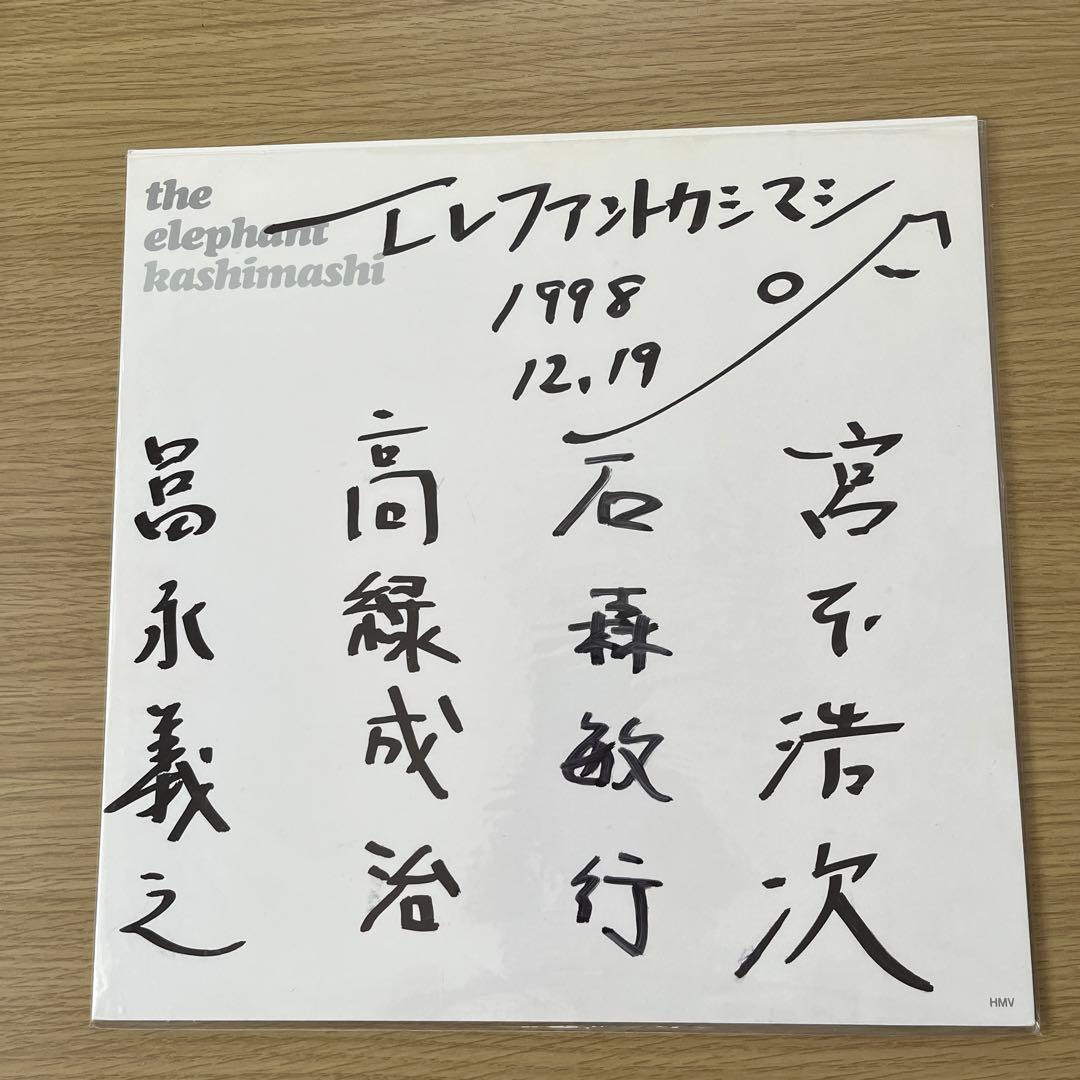 the
elephant
kashimashi
エレファントカシマシ
1998
12.19
宮本浩次
石森敏行
高緑成治
冨永義之
HMV